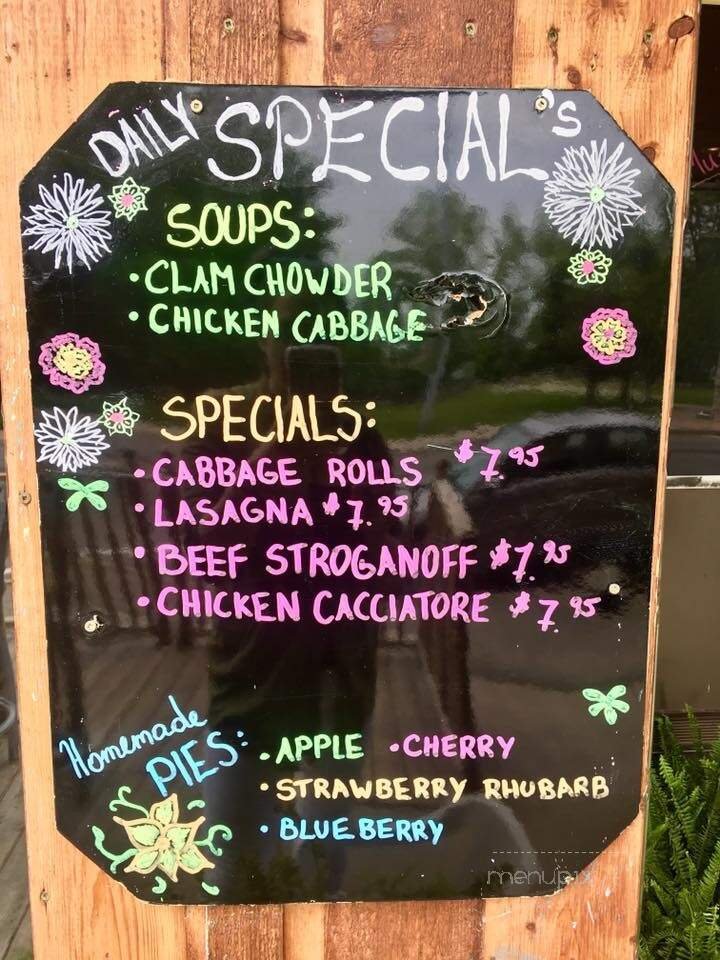 DAILY SPECIAL'S
SOUPS:
• CLAM CHOWDER
• CHICKEN CABBAGE
SPECIALS:
• CABBAGE ROLLS $7.95
• LASAGNA $7.95
• BEEF STROGANOFF $7.95
• CHICKEN CACCIATORE $7.95
Homemade
PIES: • APPLE • CHERRY
• STRAWBERRY RHUBARB
• BLUEBERRY
menupix